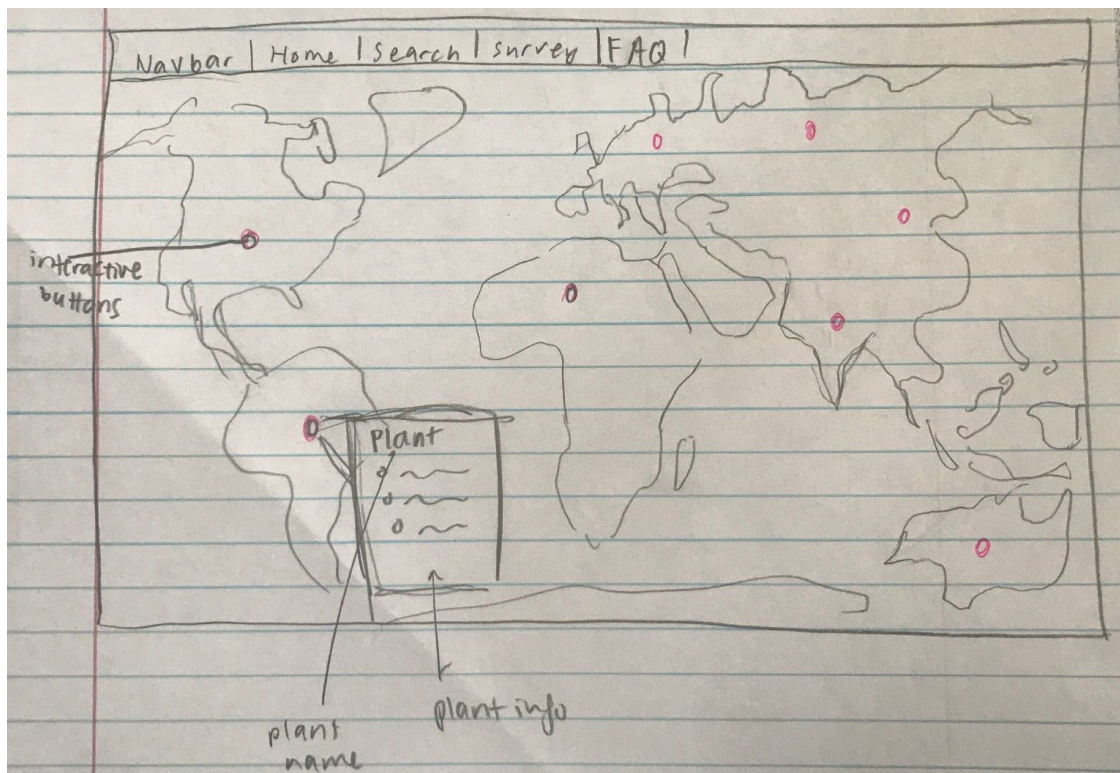 Navbar | Home | Search | survey | FAQ |
interactive
buttons
Plant
plant
name
plant info